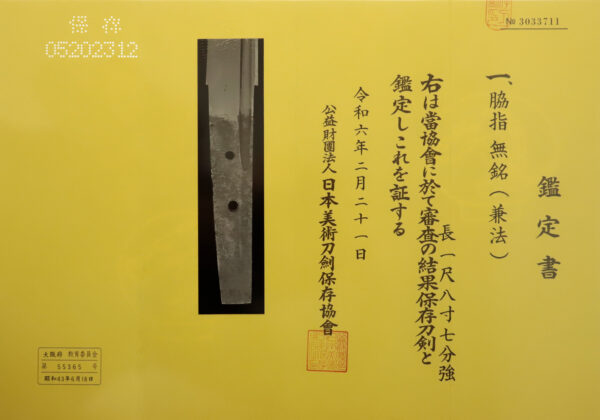 鑑定書
一、脇指 無銘(兼法)
長一尺八寸七分強
右は當協會に於て審査の結果保存刀剣と
鑑定しこれを証する
令和六年二月二十一日
公益財團法人 日本美術刀劍保存協會
№ 3033711
保存
05202312
大阪府 教育委員会
第 55365 号
昭和43年6月18日